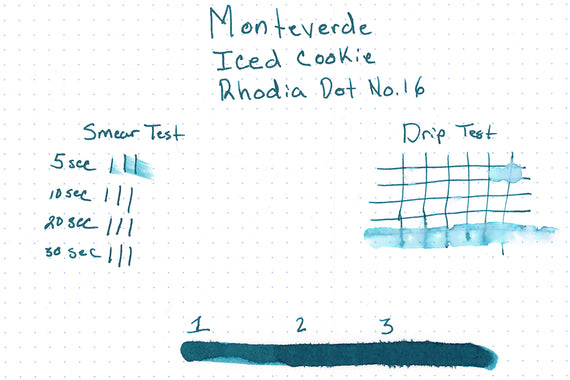 Monteverde
Iced Cookie
Rhodia Dot No.16
Smear Test
Drip Test
5 sec
10 sec
20 sec
30 sec
1 2 3